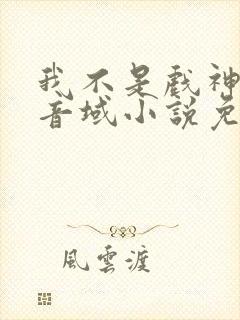 我不是戲神
音域小說免
風雲渡